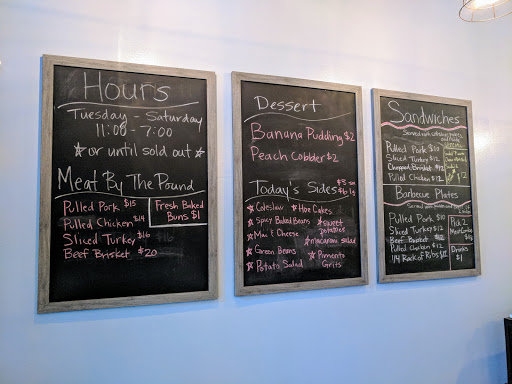 Hours
Tuesday - Saturday
11:00 - 7:00
*or until sold out*
Meat By The Pound
Pulled Pork $15
Pulled Chicken $14
Sliced Turkey $16
Beef Brisket $20
Fresh Baked
Buns $1
Dessert
Banana Pudding $2
Peach Cobbler $2
Today's Sides
Coleslaw
Spicy Baked Beans
Mac & Cheese
Green Beans
Potato Salad
Hoe Cakes
Sweet
Potatoes
Macaroni Salad
Pimento
Grits
Sandwiches
Pulled Pork $10
Sliced Turkey $12
Chopped Brisket
Pulled Chicken
$12
Barbecue Plates
Pulled Pork $10
Sliced Turkey $12
Beef Brisket
Pulled Chicken $12
1/4 Rack of Ribs
Pick 2
Meat Combo
Drinks
$1